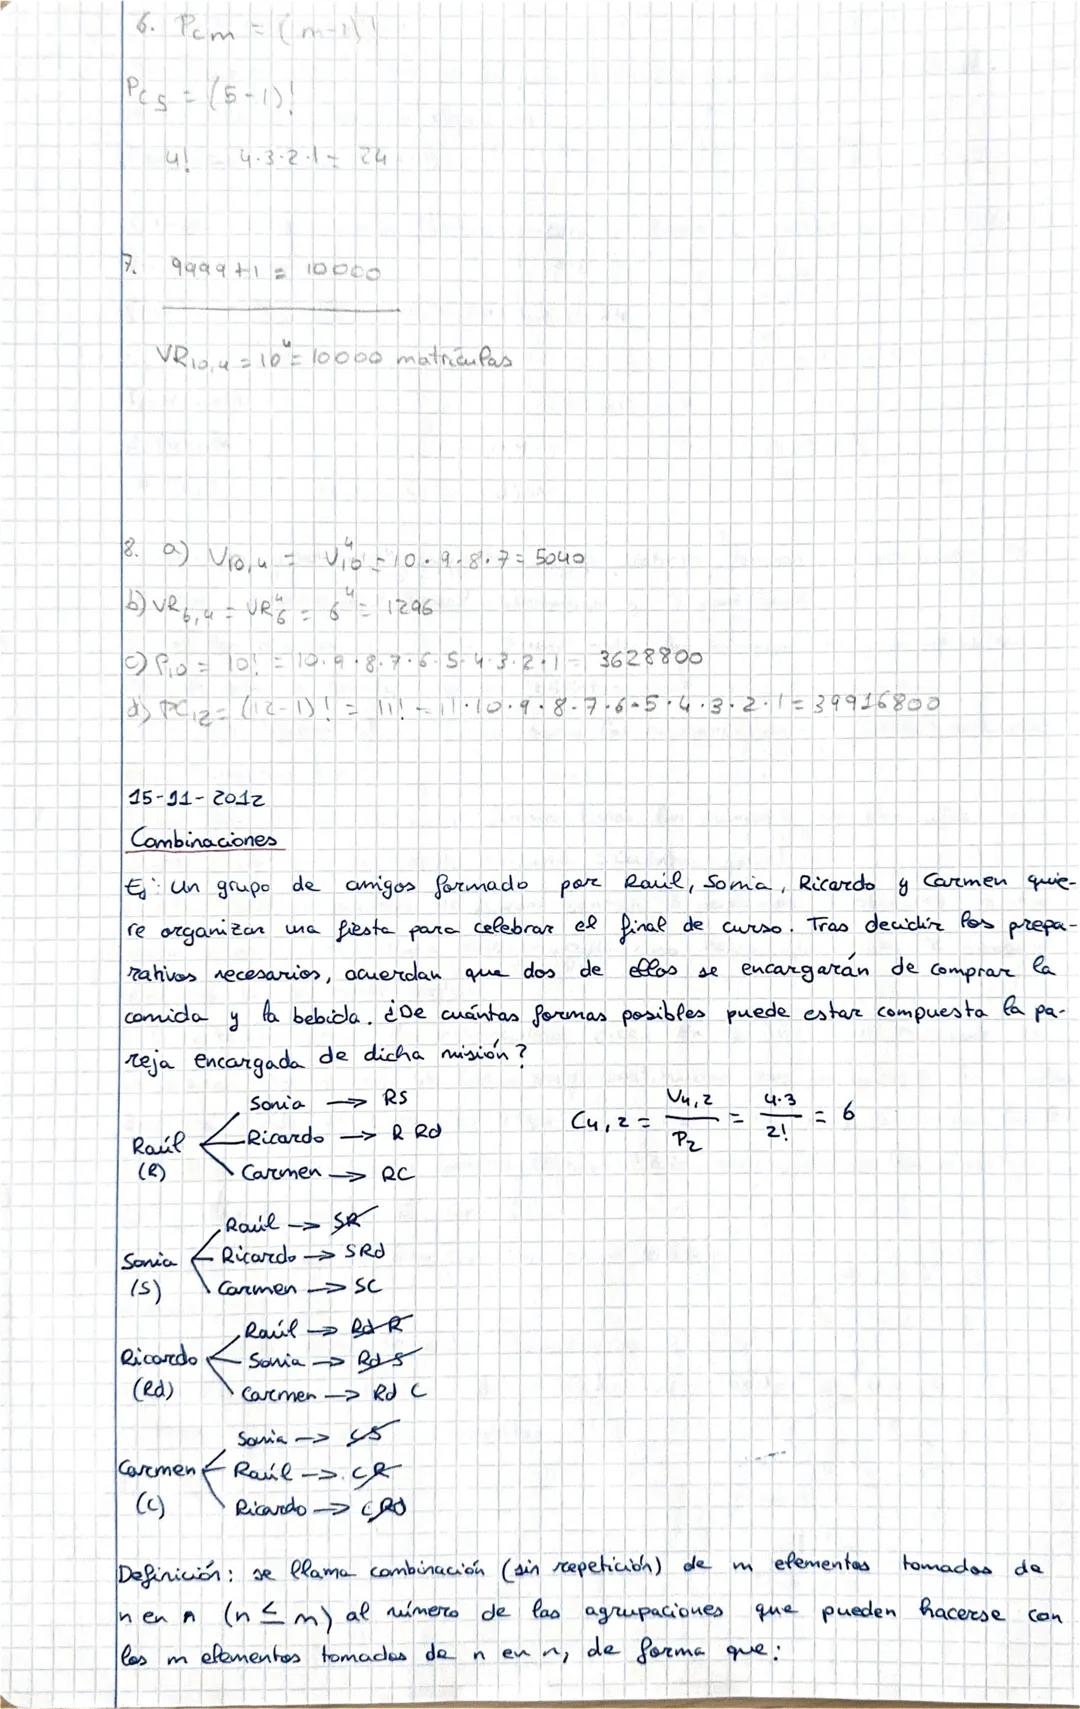 6. Pcm = (m-1)!
Pc5 = (5-1)!
4! 4·3·2·1 = 24
7. 9999+1 = 10000
VR10,4 = 10⁴ = 10000 matrículas
8. a) V10,4 = V10⁴ = 10·9·8·7 = 5040
b) VR6,4 = VR6⁴ = 6⁴ = 1296
c) P10 = 10! = 10·9·8·7·6·5·4·3·2·1 = 3628800
d) PC12 = (12-1)! = 11! = 11·10·9·8·7·6·5·4·3·2·1 = 39916800
15-11-2012
Combinaciones
Ej: Un grupo de amigos formado por Raúl, Sonia, Ricardo y Carmen quie-
re organizar una fiesta para celebrar el final de curso. Tras decidir los prepa-
rativos necesarios, acuerdan que dos de ellos se encargarán de comprar la
comida y la bebida. ¿De cuántas formas posibles puede estar compuesta la pa-
reja encargada de dicha misión?
Sonia → RS
Raúl Ricardo → R Rd
(R) Carmen → RC
C4,2 = V4,2 / P2 = 4·3 / 2! = 6
Raúl → SR
Sonia Ricardo → SRd
(S) Carmen → SC
Raúl → Rd R
Ricardo Sonia → Rd S
(Rd) Carmen → Rd C
Sonia → CS
Carmen Raúl → CR
(C) Ricardo → CRd
Definición: se llama combinación (sin repetición) de m elementos tomados de
n en n (n ≤ m) al número de las agrupaciones que pueden hacerse con
los m elementos tomados de n en n, de forma que: